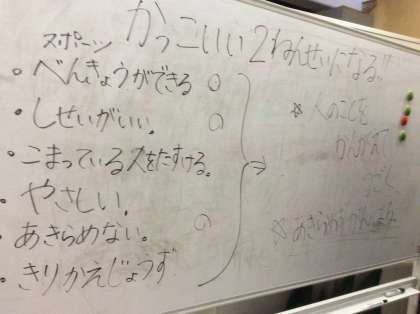 かっこいい2ねんせいになる!!
スポーツ
・べんきょうができる
・しせいがいい。
・こまっている人をたすける。
・やさしい。
・あきらめない。
・きりかえじょうず
☆人のことを
かんがえて